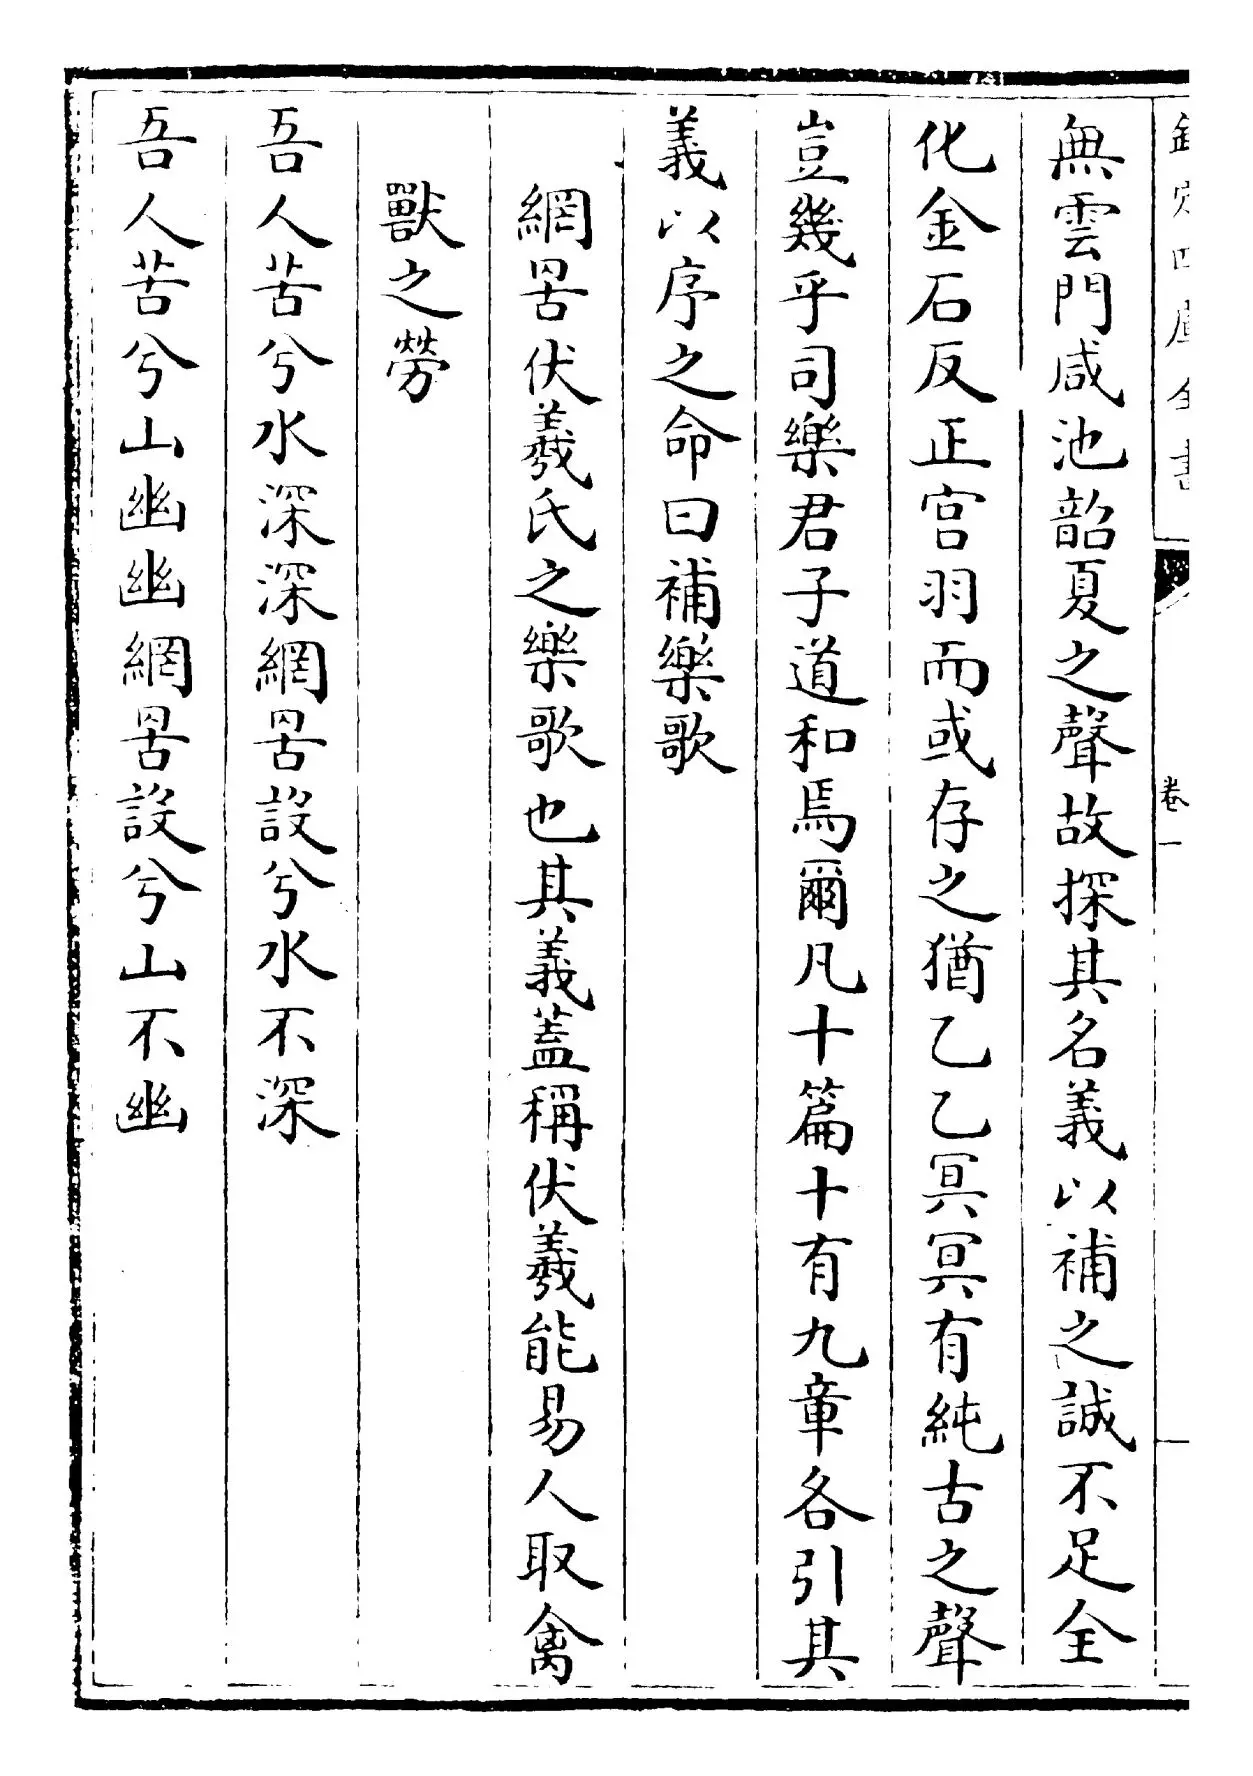 欽定四庫全書
卷一
無雲門咸池韶夏之聲故探其名義以補之誠不足全
化金石反正宫羽而或存之猶乙乙冥冥有純古之聲
豈幾乎司樂君子道和焉爾凡十篇十有九章各引其
義以序之命曰補樂歌
網罟伏羲氏之樂歌也其義蓋稱伏羲能易人取禽
獸之勞
吾人苦兮水深深網罟設兮水不深
吾人苦兮山幽幽網罟設兮山不幽